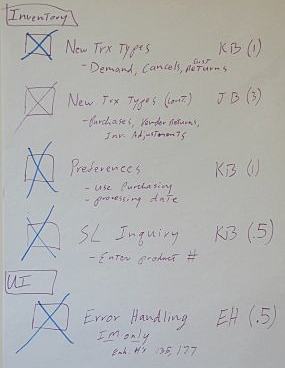 Inventory
New Trx Types KB (1)
- Demand, Cancels, Cust Returns
New Trx Types (cont.) JB (3)
- Purchases, Vendor Returns,
Inv. Adjustments
Preferences KB (1)
- Use Purchasing
- processing date
SL Inquiry KB (.5)
- Enter product #
UI
Error Handling EH (.5)
IM only
Enh. #'s 135, 177